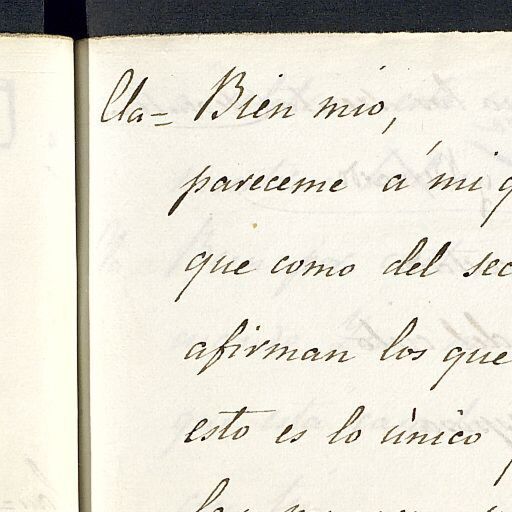 Cla= Bien mio,
pareceme á mi q
que como del sec
afirman los que
esto es lo único